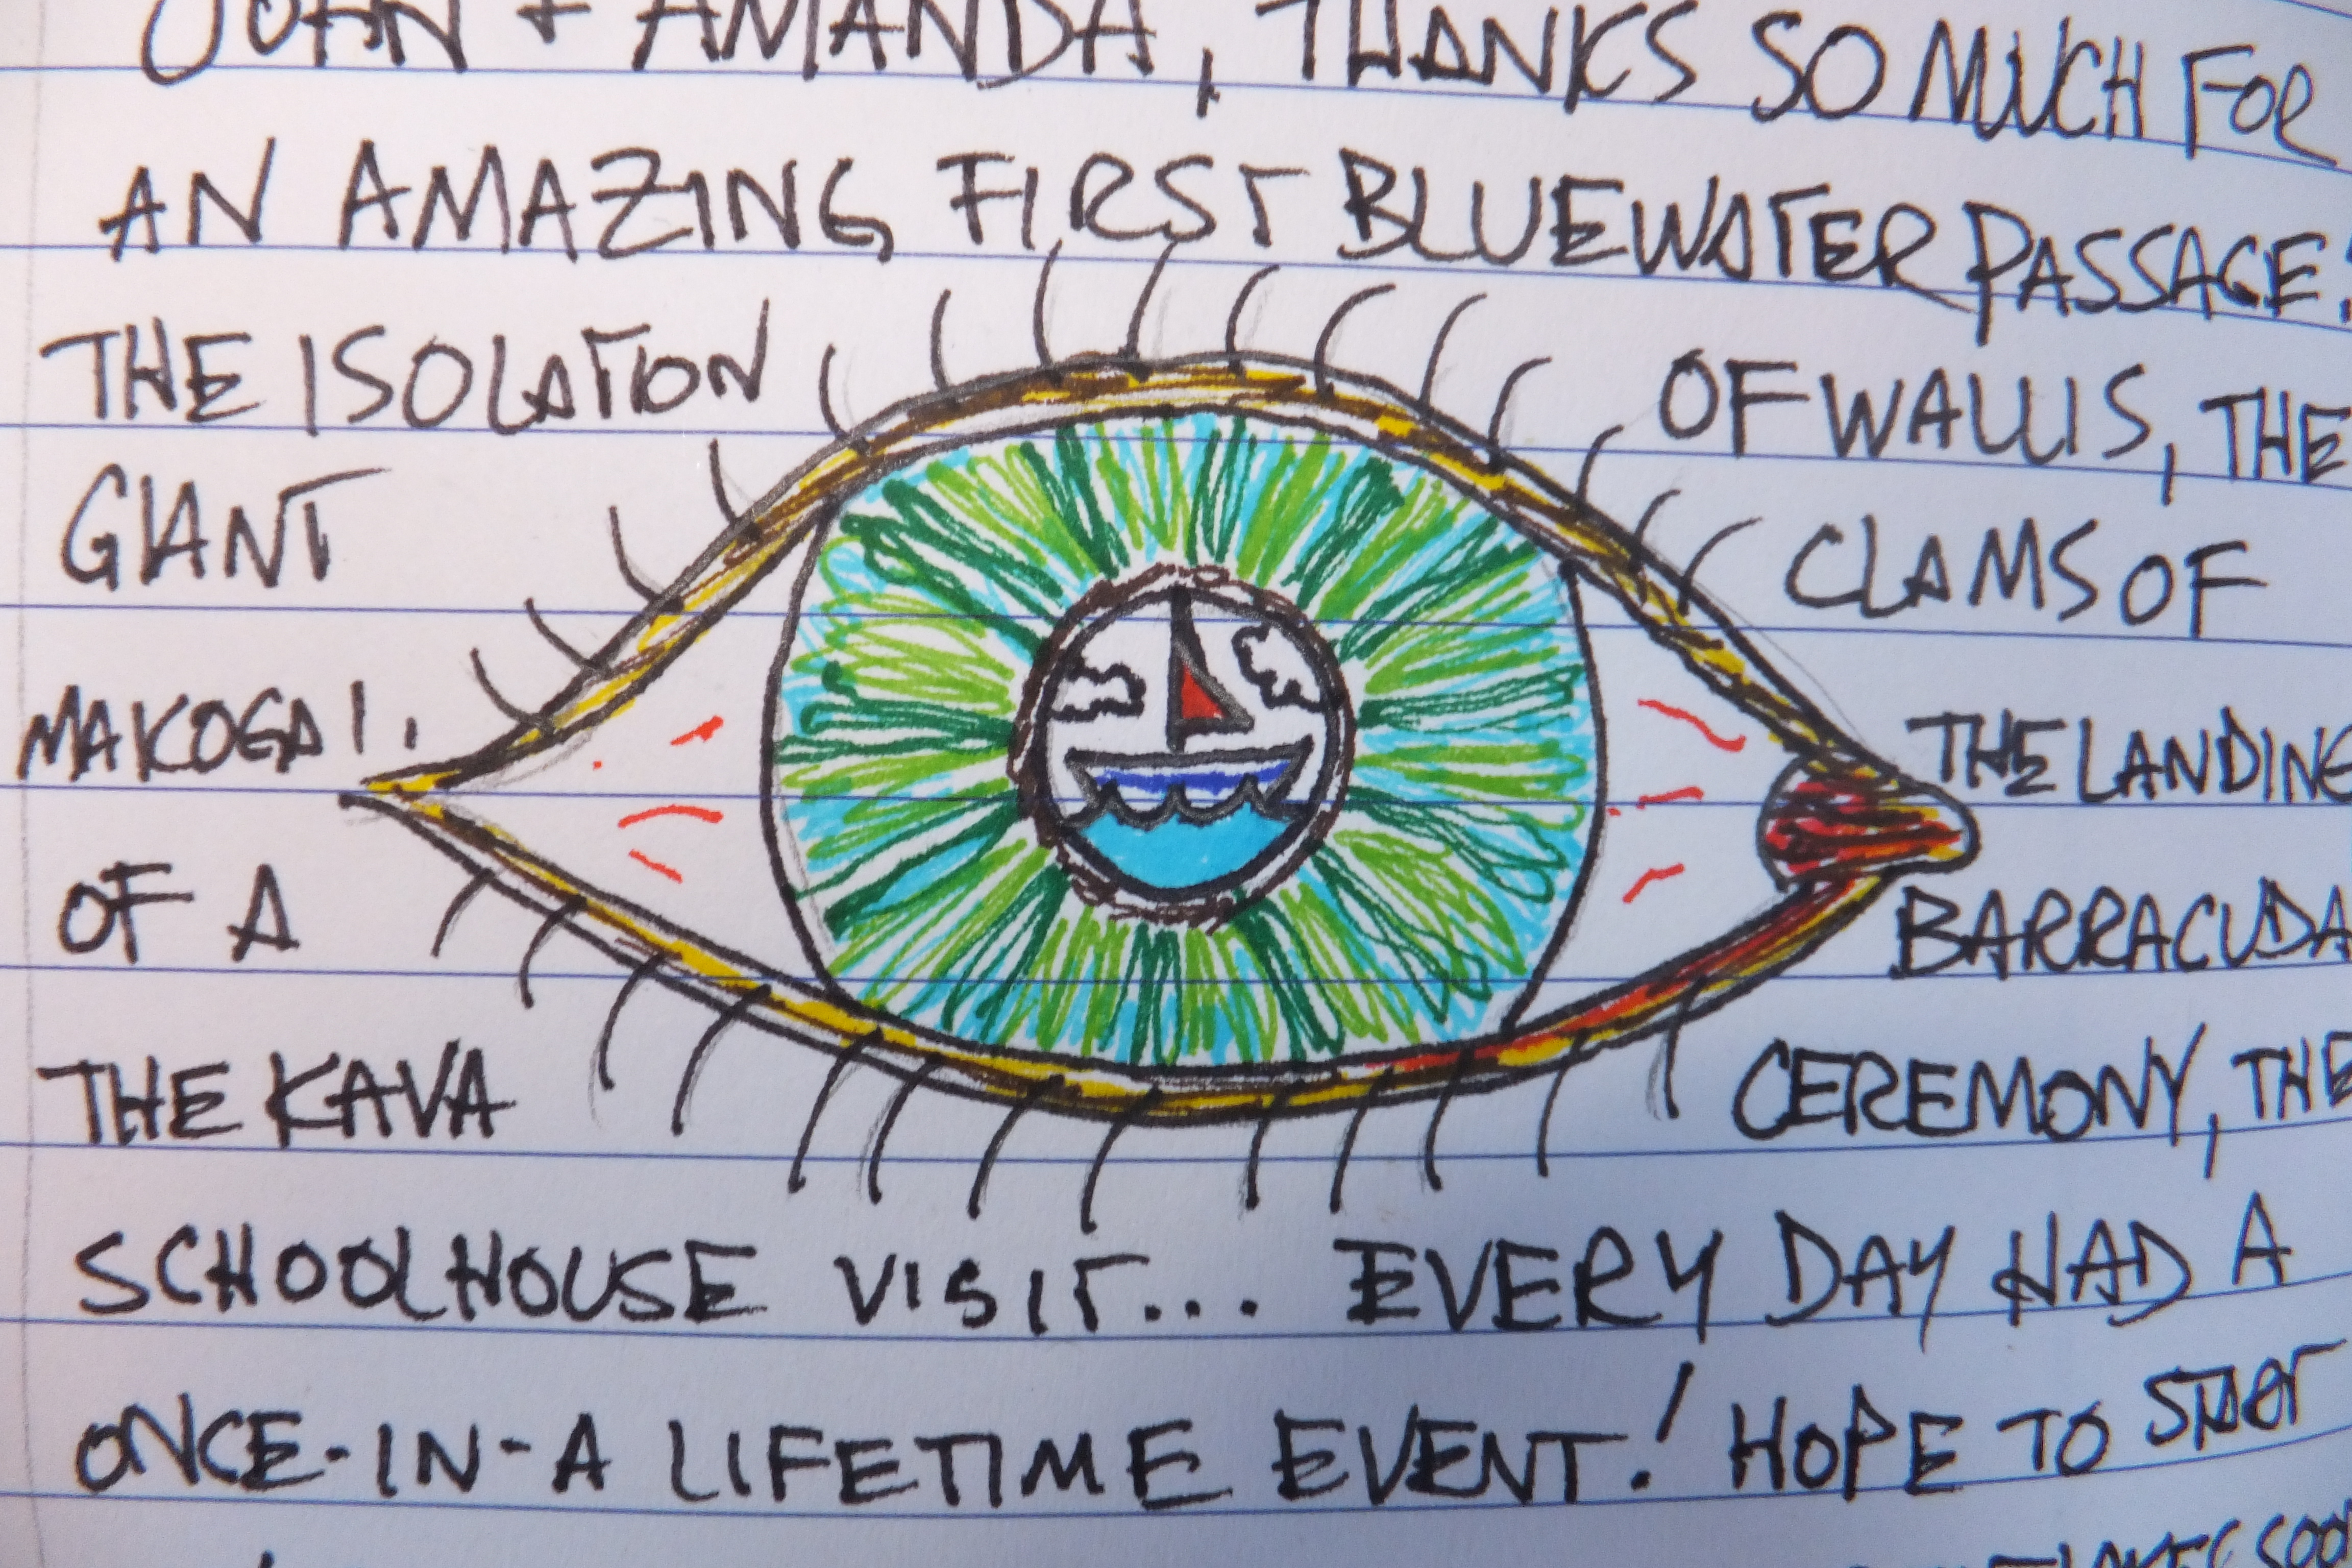 JOHN + AMANDA, THANKS SO MUCH FOR
AN AMAZING FIRST BLUEWATER PASSAGE!
THE ISOLATION OF WALLIS, THE
GIANT CLAMS OF
MAKOGAI, THE LANDING
OF A BARRACUDA
THE KAVA CEREMONY, THE
SCHOOLHOUSE VISIT... EVERY DAY HAD A
ONCE-IN-A LIFETIME EVENT! HOPE TO START